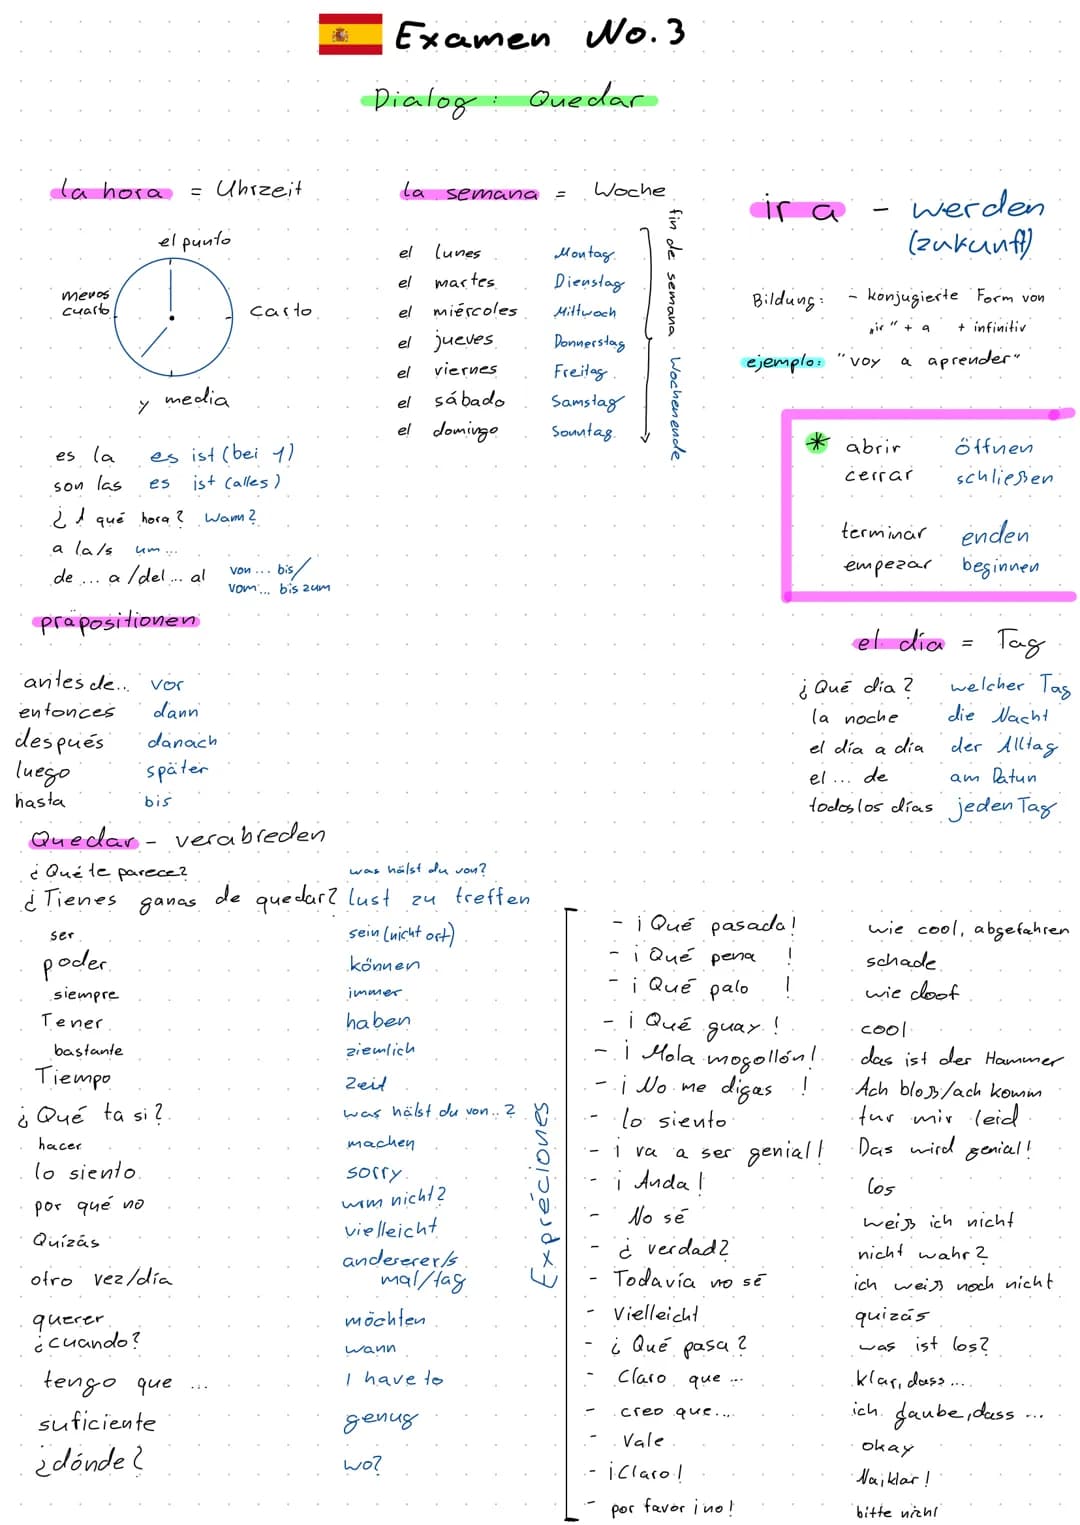 Examen No.3
Dialog: Quedar
la hora = Uhrzeit
el punto
menos
cuarto
carto
y media
es la es ist (bei 1)
son las es ist (alles)
¿A qué hora? Wann?
a la/s um...
de ... a/del... al von... bis/
vom... bis zum
la semana = Woche
el lunes Montag
el martes Dienstag
el miércoles Mittwoch
el jueves Donnerstag
el viernes Freitag
el sábado Samstag
el domingo Sonntag
fin de semana Wochenende
ir a - werden
(zukunft)
Bildung: - konjugierte Form von
"ir" + a + infinitiv
ejemplo: "voy a aprender"
* abrir öffnen
cerrar schließen
terminar enden
empezar beginnen
präpositionen
antes de.. vor
entonces dann
después danach
luego später
hasta bis
el día = Tag
¿Qué día? welcher Tag
la noche die Nacht
el día a día der Alltag
el ... de am Datun
todos los días jeden Tag
Quedar - verabreden
¿Qué te parece? was hälst du von?
¿Tienes ganas de quedar? lust zu treffen
ser sein (nicht ort)
poder können
siempre immer
Tener haben
bastante ziemlich
Tiempo Zeit
¿Qué ta si? was hälst du von..?
hacer machen
lo siento sorry
por qué no wrm nicht?
Quizás vielleicht
otro vez/día andererer/s
mal/tag
querer möchten
¿cuando? wann
tengo que ... I have to
suficiente genug
¿dónde? wo?
Expreciones
- ¡Qué pasada! wie cool, abgefahren
- ¡Qué pena! schade
- ¡Qué palo! wie doof
- ¡Qué guay! cool
- ¡Mola mogollón! das ist der Hammer
- ¡No me digas! Ach bloß/ach komm
- lo siento tut mir leid
- ¡va a ser genial! Das wird genial!
- ¡Anda! los
- No sé weiß ich nicht
- ¿verdad? nicht wahr?
- Todavía no sé ich weiß noch nicht
- Vielleicht quizás
- ¿Qué pasa? was ist los?
- Claro que ... klar, dass ...
- creo que... ich glaube, dass ...
- Vale okay
- ¡Claro! Na, klar!
- por favor ¡no! bitte nicht